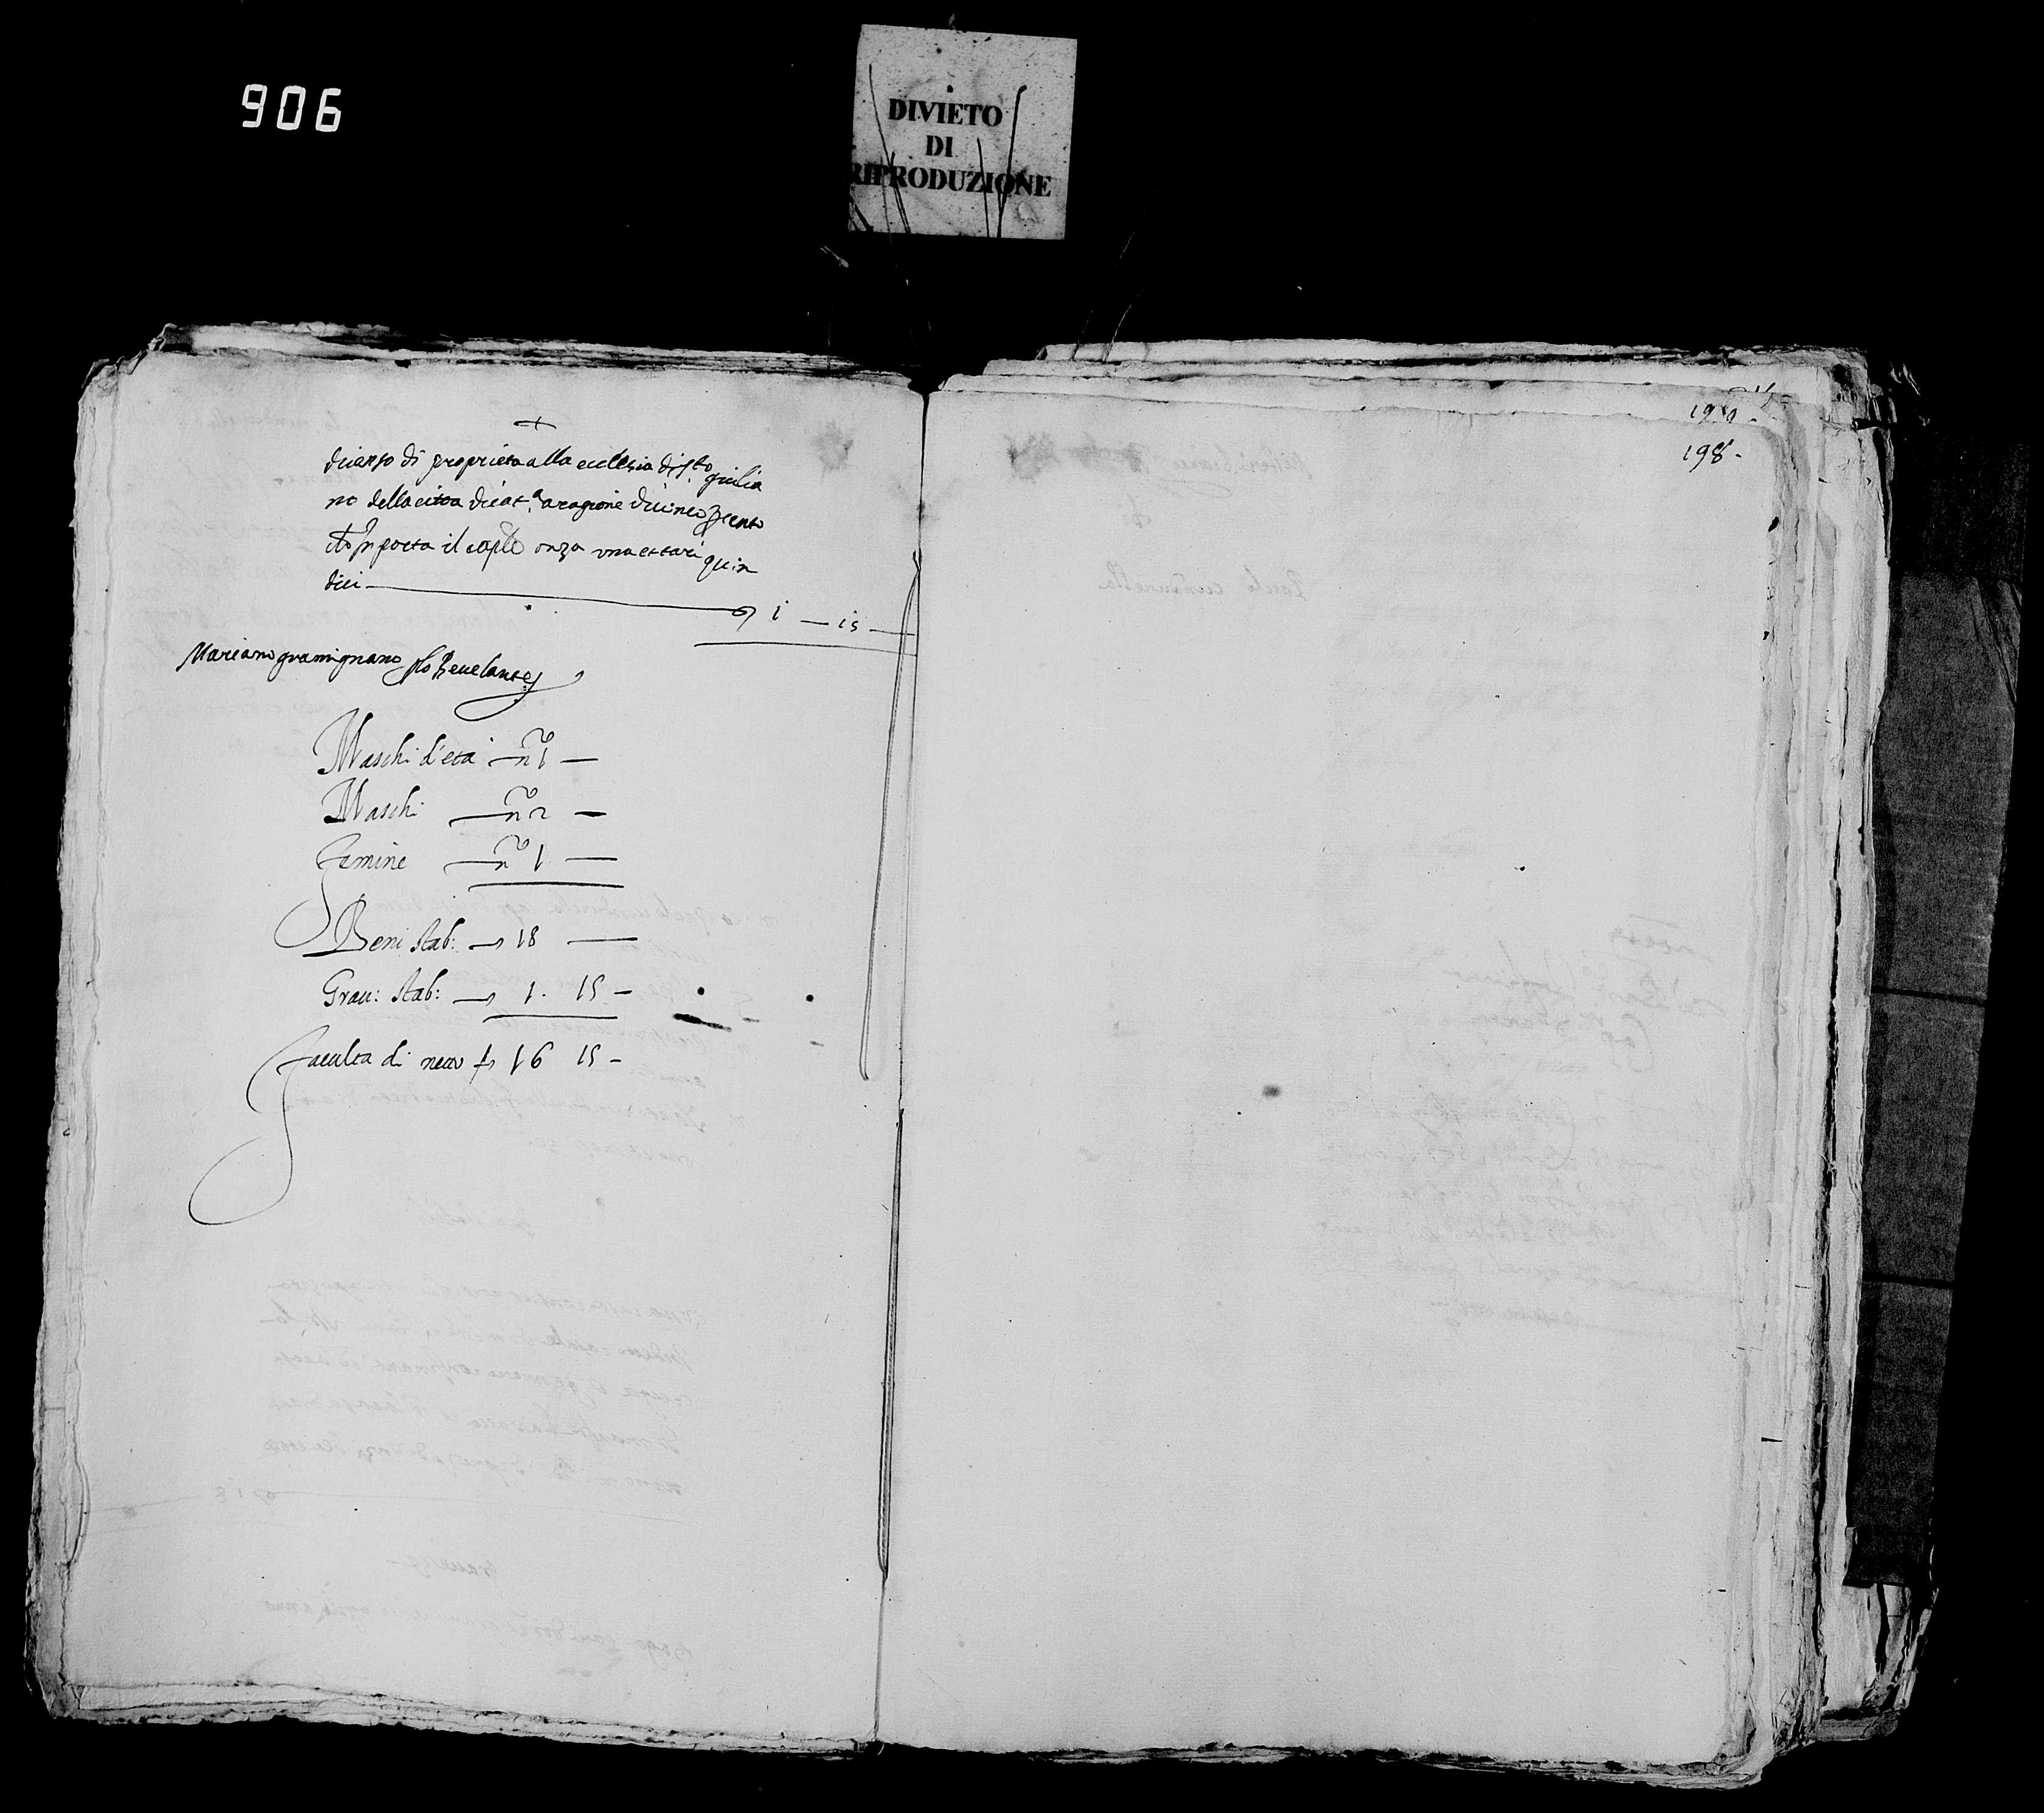 906
DIVIETO
DI
RIPRODUZIONE
190 -
198 -
+
di censo di proprieta alla ecclesia di sto giulia
no della citta di cat.a a ragione di cinco per cento
Importa il caple onza una et tari quin
dici 1 — 15 —
Mariano gramignano Revelante
Maschi d'eta — no 1 —
Maschi — no 2 —
Femine — no 1 —
Beni stab: — 18 —
Grav: stab: — 1 . 15 —
Faculta di netto 16 15 —